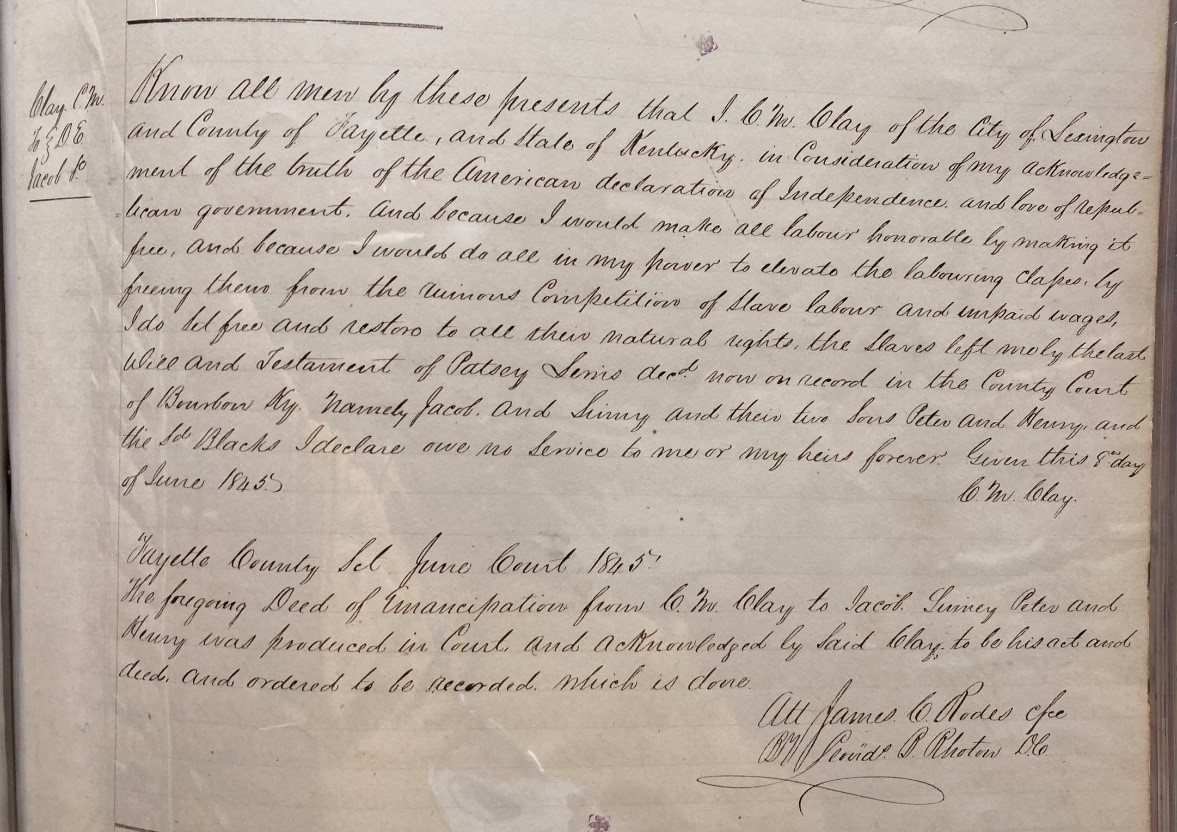 Clay. C. M.
To } D E
Jacob &c
Know all men by these presents that I. C. M. Clay of the City of Lexington
and County of Fayette, and State of Kentucky. in Consideration of my acknowledge=
ment of the truth of the American declaration of Independence. and love of repub=
lican government. And because I would make all labour honorable by making it
free, and because I would do all in my power to elevate the labouring class. by
freeing them from the ruinous Competition of slave labour and unpaid wages,
I do set free and restore to all their natural rights. the slaves left me by the last
Will and Testament of Patsey decd. now on record in the County Court
of Bourbon Ky. Namely Jacob. and and their two Sons Peter and Henry. and
the sd Blacks I declare owe no service to me or my heirs forever. Given this day
of June 1845
C. M. Clay.
Fayette County Sct June Court 1845.
The foregoing Deed of Emancipation from C. M. Clay to Jacob. Peter and
Henry was produced in Court. and acknowledged by said Clay. to be his act and
deed. and ordered to be recorded. which is done.
Att James C. Rodes cfcc
By P. Rhoton DC